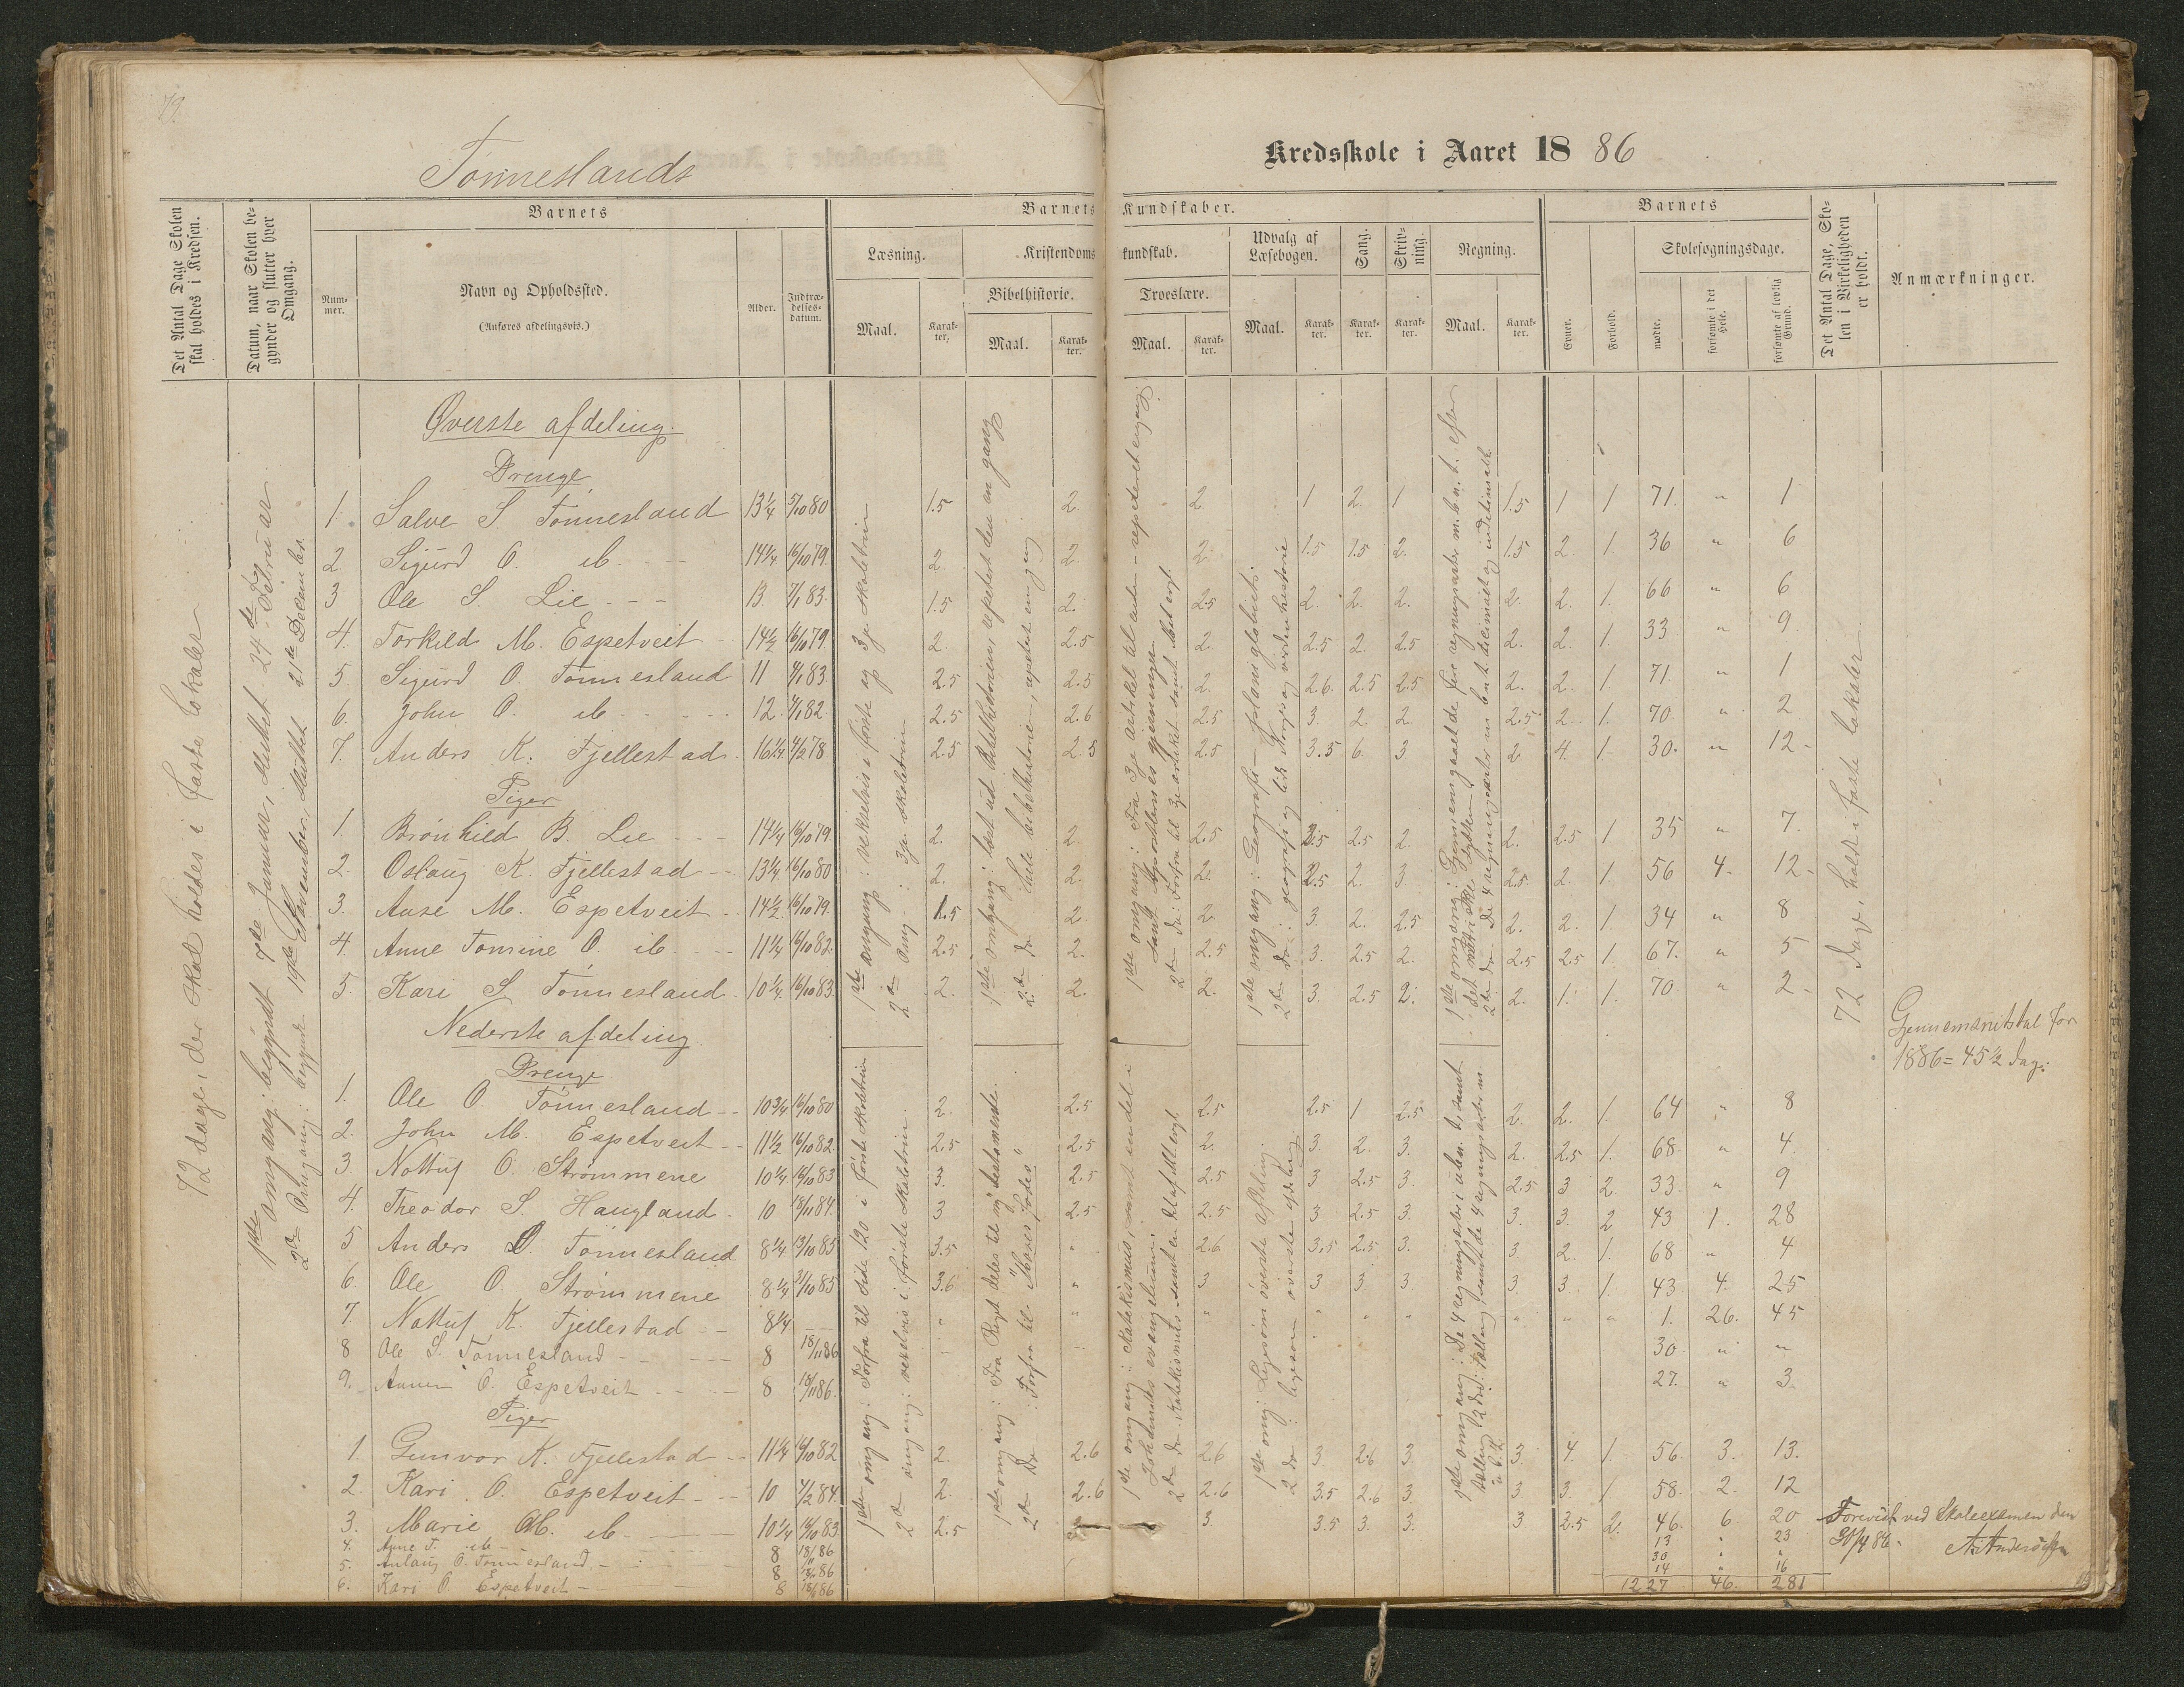 79.
Tønneslands
Kredsskole i Aaret 18 86
Det Antal Dage Skolen skal holdes i Kredsen.
Datum, naar Skolen begynder og slutter hver Omgang.
Barnets
Nummer.
Navn og Opholdssted.
(Anføres afdelingsvis.)
Alder.
Indtrædelsesdatum.
Barnets Kundskaber.
Læsning.
Maal.
Karakter.
Kristendomskundskab.
Bibelhistorie.
Maal.
Karakter.
Troeslære.
Maal.
Karakter.
Udvalg af Læsebogen.
Maal.
Karakter.
Sang.
Karakter.
Skrivning.
Karakter.
Regning.
Maal.
Karakter.
Barnets
Evner.
Forhold.
Skolesøgningsdage.
mødte.
forsømte i det Hele.
forsømte af lovlig Grund.
Det Antal Dage, Skolen i Virkeligheden er holdt.
Anmærkninger.
72 dage, der skal holdes i faste lokaler
1ste omgang: begyndt 7de Januar, sluttet 24de Februar
2den Omgang: begyndt 19de November, sluttet 21de December.
Øverste afdeling.
Drenge
1. Salve S Tønnesland 13¼ 5/10 80 1.5 2. 2 1 2. 1 1.5 1 1 71. " 1
2. Sigurd O. ib. 14¼ 16/10 79. 2. 2. 2. 1.5 1.5 2. 1.5 2. 1 36 " 6
3 Ole S. Lie 13. 7/1 83. 1.5 2. 2.5 2. 2. 2. 2. 2. 1. 66 " 6
4. Torkild M. Espetveit 14½ 16/10 79. 2. 2.5 2. 2.5 2. 2.5 2. 2. 1. 33 " 9
5. Sigurd O. Tønnesland 11 4/1 83. 2.5 2.5 2. 2.6. 2.5 2.5 2. 2. 1 71. " 1
6. John O. ib 12. 4/1 82. 2.5 2.6 2.5 3. 2. 2. 2.5 2. 1. 70. " 2
7. Anders K. Fjellestad. 16¼ 4/2 78 2.5 2.5 2.5 3.5 6. 3 2 4. 1. 30. " 12
Piger
1. Brønhild B. Lie 14¼ 16/10 79. 2. 2. 2.5 2.5 2.5 2. 2. 2.5 1. 35 " 7.
2. Oslaug K. Fjellestad 13¼ 16/10 80 2. 2. 2. 2.5 2. 3. 2.5. 2. 1. 56 4. 12
3. Aase M. Espetveit 14½ 16/10 79. 1.5 2 2 3. 2. 2.5 2. 2. 1. 34 " 8
4. Anne Tomine O. ib. 11¼ 16/10 82. 2.5 2. 2.5 3. 2.5 2. 2.5 2.5 1. 67. " 5
5. Kari S. Tønnesland 10¼ 16/10 83 2. 2. 2. 3. 2.5 2. 2. 1. 1. 70. " 2
1ste omgang: vekselvis i første og 3je skoletrin
2den Omg.: 3je skoletrin
1ste omgang: læst ud bibelhistorien, repetert den en gang
2den do: hele bibelhistorien, repetert en gang
1ste omgang: Fra 3je artikel til enden - repeteret engang
samt Apostlenes gjerninger.
2den do: Forfra til 3je artikel samt Mat. evgl.
1ste omgang: Geografi
2den do: geografi og lidt Norges og verdenshistorie
72 dage, holdt i faste lokaler
Gjennemsnitstal for
1886 = 45½ dag:
Nederste afdeling.
Drenge
1. Ole O. Tønnesland 10¾ 16/10 80 2. 2.5 2.5 2.5 1 2.5 2. 2. 1. 64 " 8
2. John M. Espetveit 11½ 16/10 82. 2.5 2.5 2. 3. 2. 3. 2. 2.5 1. 68. " 4.
3. Nottuf O. Strømmene 10¼ 16/10 83 3. 2.5 2.5 3 2.5 3. 2.5 3 2. 33. " 9
4. Theodor S. Haugland 10 18/11 84. 3 2.5 2.5 3 2.5 3. 3. 3. 2 43 1. 28
5 Anders O. Tønnesland 8¼ 13/10 85 3.5 " 2.6 3.5 2.5 3. 3. 2. 1. 68 " 4
6. Ole O. Strømmene 8¼ 31/10 85 3.6 " 3 3 3. 3 3. 3. 1. 43 4. 25
7. Nottuf K. Fjellestad 8¼ " " " " " " " " " 1. 26. 45
8 Ole S. Tønnesland 8 18/11 86 30. " "
9. O. Espetveit 8 18/11 86. 27. " 3.
Piger
1. Gunvor K. Fjellestad 11¼ 16/10 82 2. 2.6 2.6 3 2.6 3. 3. 4. 1. 56. 3. 13.
2. Kari O. Espetveit 10 4/2 84. 2. 2.6 2.6 3.5 2.6 3. 3 3. 1. 58. 2. 12
3. Marie M. ib 10¼ 16/10 83 2.5 3 3. 3.5 3. 3. 3 2.5 2. 46. 6 20
4. Anne T. ib 8 18/ 86 13 " 23
5. Aslaug O. Tønnesland 8 86 30 "
6. Kari O. Espetveit 8 86 14 " 16
1227 46. 281
1ste omgang: Forfra til side 120 i første skoletrin
2den omgang: vekselvis i første skoletrin.
2den Do: Forfra til "Moses fødes"
1ste omgang: katekismus, samt endel i
Johannes evangelium.
1ste omg: Ligesom øverste afdeling.
2 do: ligesom øverste afdeling
Forevist ved Skoleexamen den
A. Anderssen